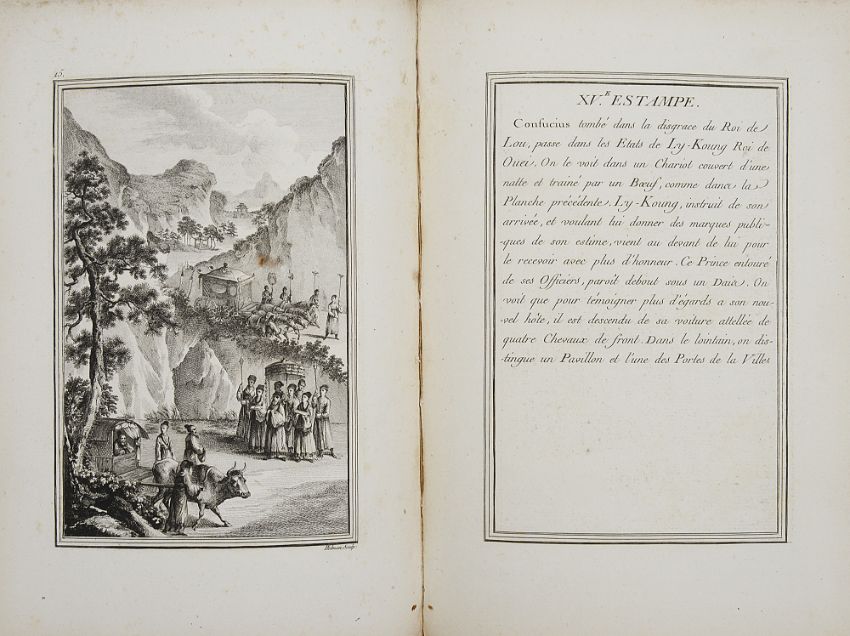 15.
Helman Sculp.
XV.E ESTAMPE.
Confucius tombé dans la disgrace du Roi de
Lou, passe dans les Etats de Ly-Koung Roi de
Ouei. On le voit dans un Chariot couvert d'une
natte et trainé par un Bœuf, comme dans la
Planche précédente. Ly-Koung, instruit de son
arrivée, et voulant lui donner des marques publi-
-ques de son estime, vient au devant de lui pour
le recevoir avec plus d'honneur. Ce Prince entouré
de ses Officiers, paroit debout sous un Daix. On
voit que pour témoigner plus d'égards a son nou-
-vel hôte, il est descendu de sa voiture attellée de
quatre Chevaux de front. Dans le lointain, on dis-
-tingue un Pavillon et l'une des Portes de la Ville.